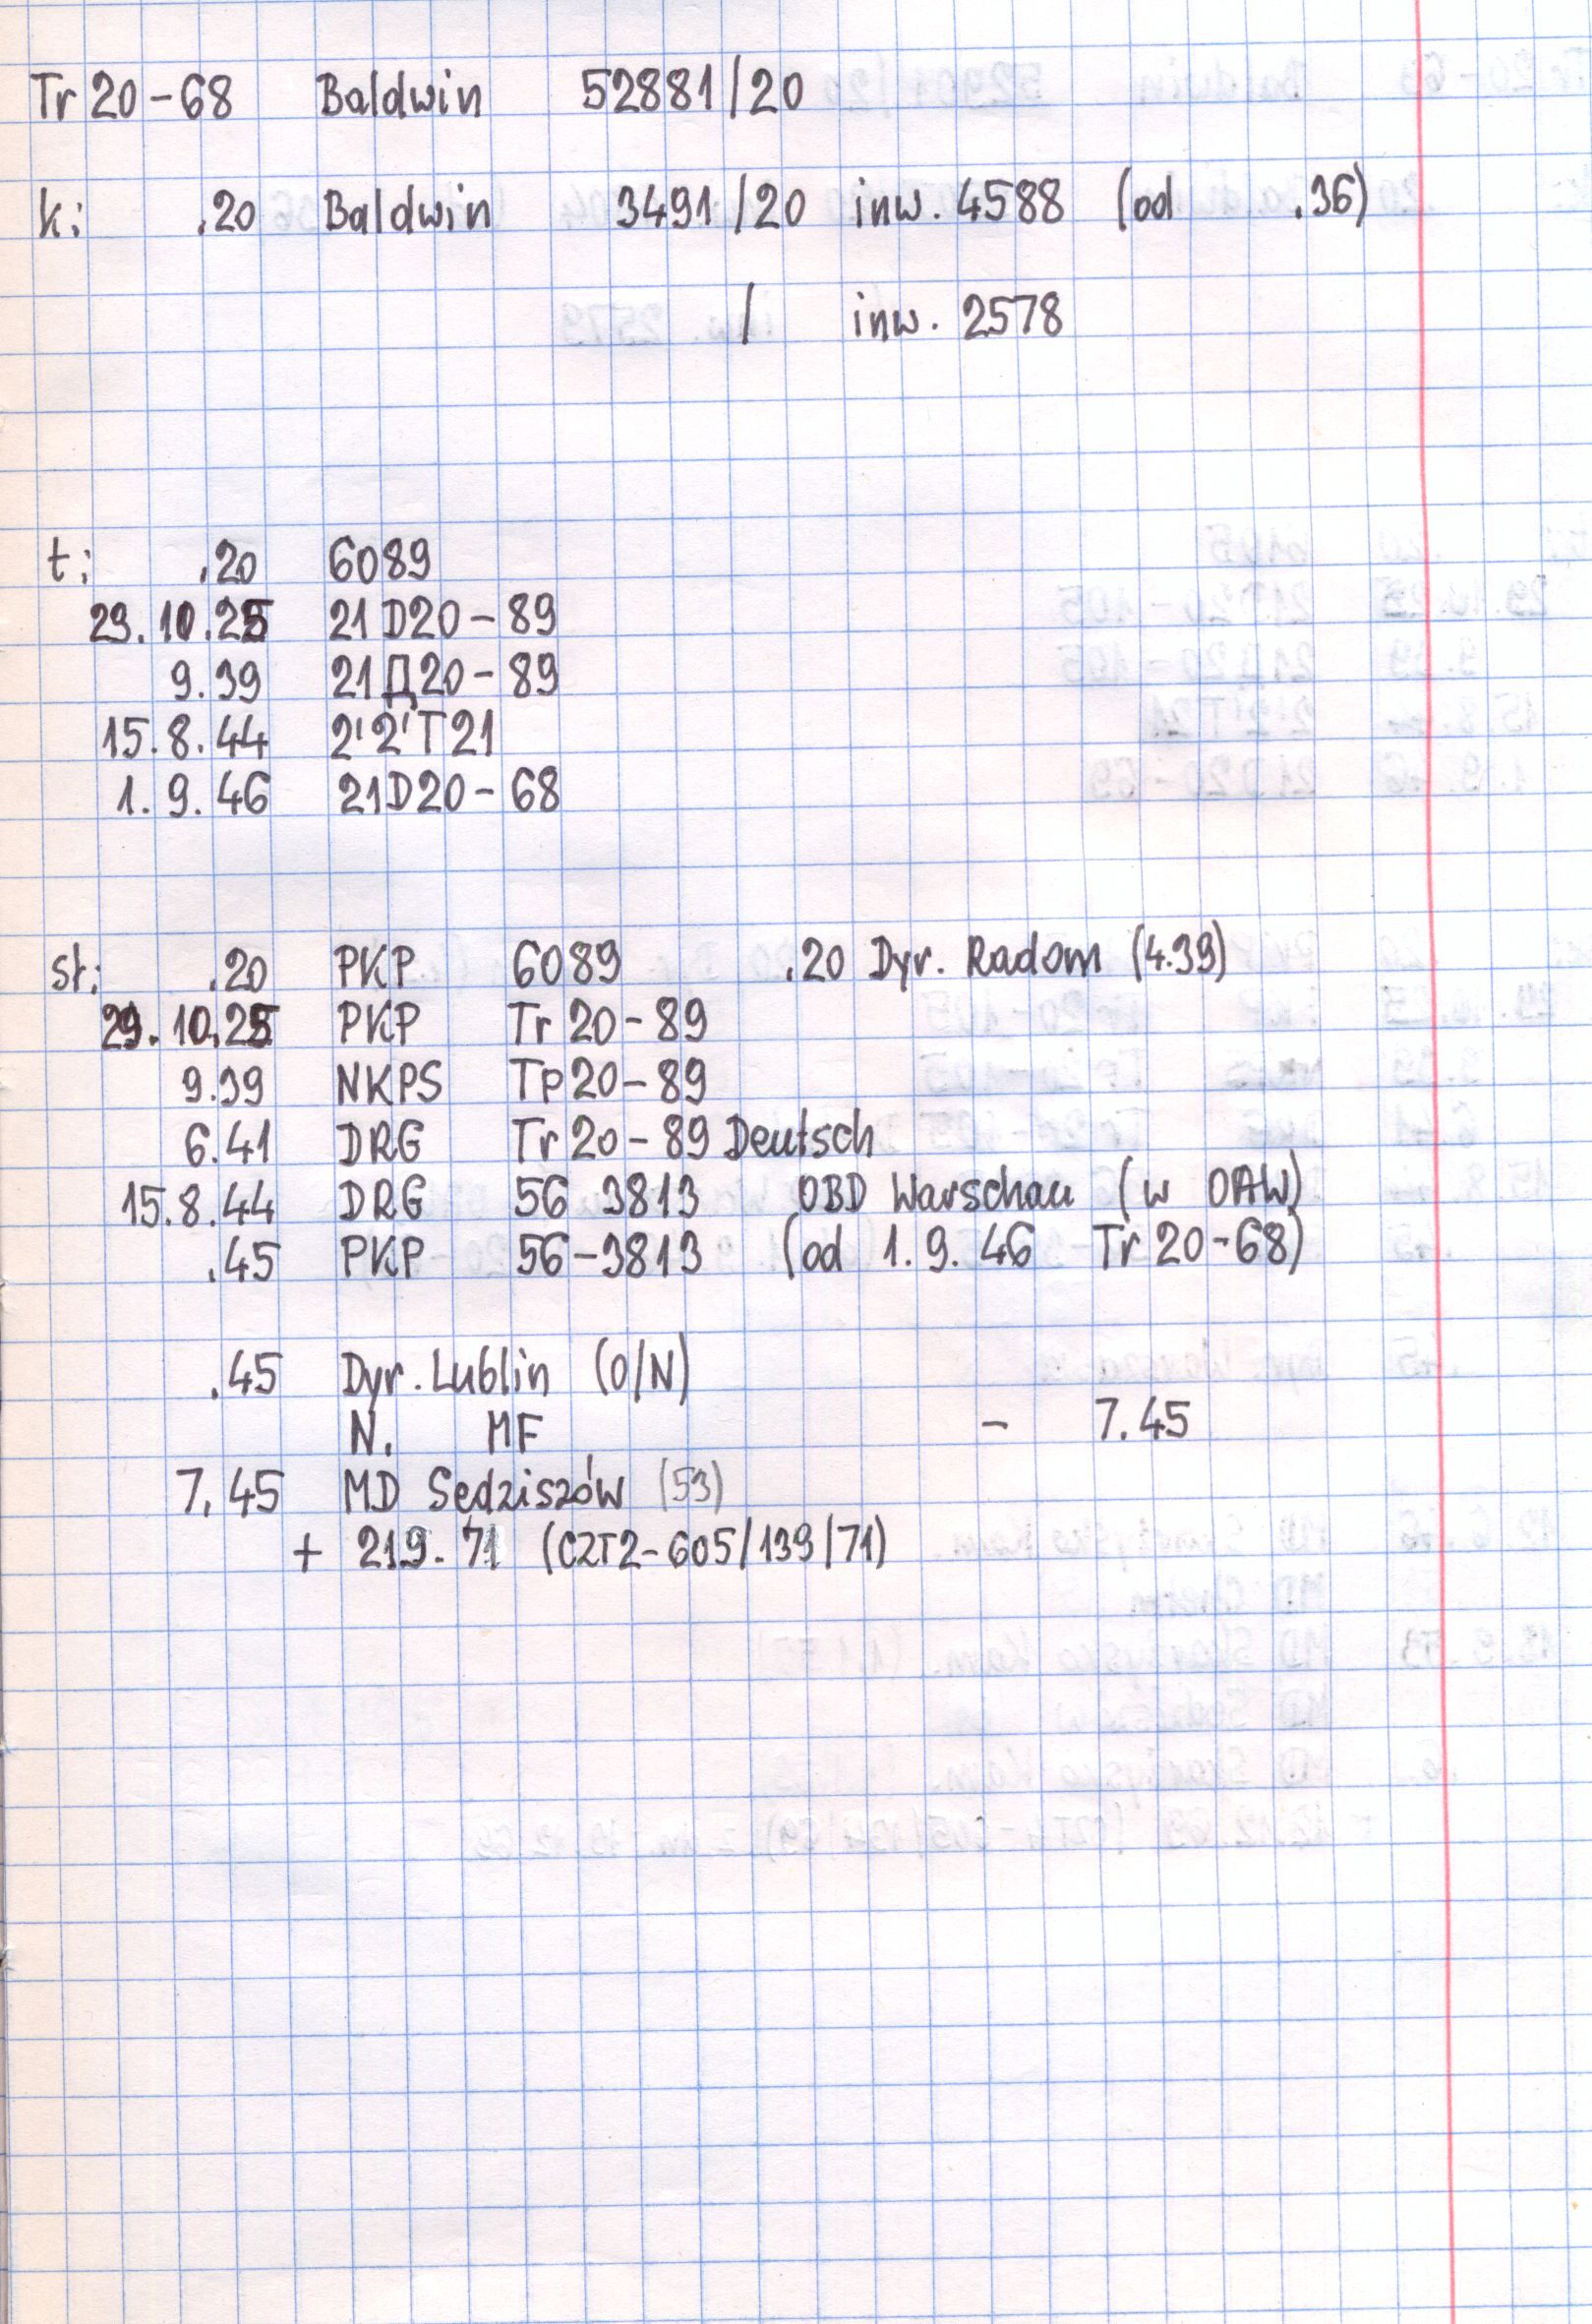 Tr 20-68 Baldwin 52881/20
k: .20 Baldwin 3491/20 inw. 4588 (od .36)
/ inw. 2578
t: .20 6089
29.10.25 21D20-89
9.39 21Д20-89
15.8.44 2'2'T21
1.9.46 21D20-68
st: .20 PKP 6089 .20 Dyr. Radom (4.39)
29.10.25 PKP Tr 20-89
9.39 NKPS Tp 20-89
6.41 DRG Tr 20-89 Deutsch
15.8.44 DRG 56 3813 OBD Warschau (w OAW)
.45 PKP 56-3813 (od 1.9.46 Tr 20-68)
.45 Dyr. Lublin (O/N)
N. MF - 7.45
7.45 MD Sedziszów (53)
+ 219.71 (CZT2-605/139/71)